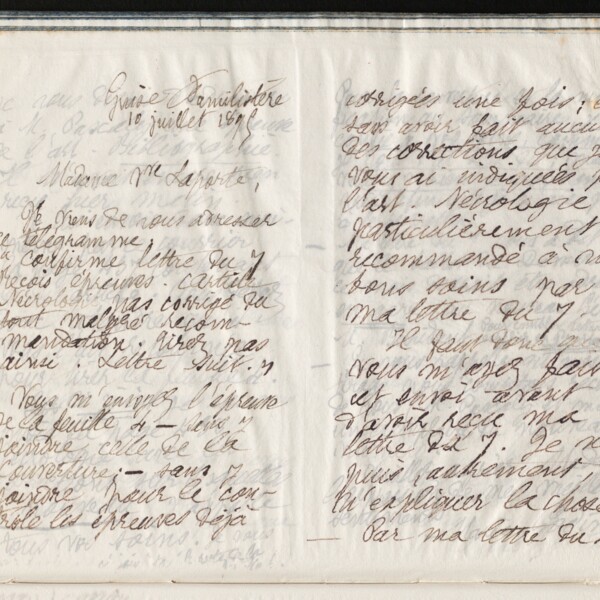 Guise Familistère
10 juillet 189
Madame Vve Laporte,
Je viens de vous adresser
ce télégramme,
confirme lettre du 7
reçois épreuves. article
Nécrologie pas corrigé du
tout malgré recom-
mandation. tirez pas
ainsi. Lettre suit.
Vous m'envoyez l'épreuve
de la feuille 4 — sans y
joindre celle de la
couverture; — sans y
joindre pour le con-
trôle les épreuves déjà
corrigées une fois;
sans avoir fait aucu
des corrections que j
vous ai indiquées
l'art. Nécrologie
particulièrement
recommandé à v
bons soins par
ma lettre du 7
Il faut donc que
vous m'ayez fait
cet envoi avant
d'avoir reçu ma
lettre du 7. Je n
puis, autrement,
m'expliquer la chose
— Par ma lettre du